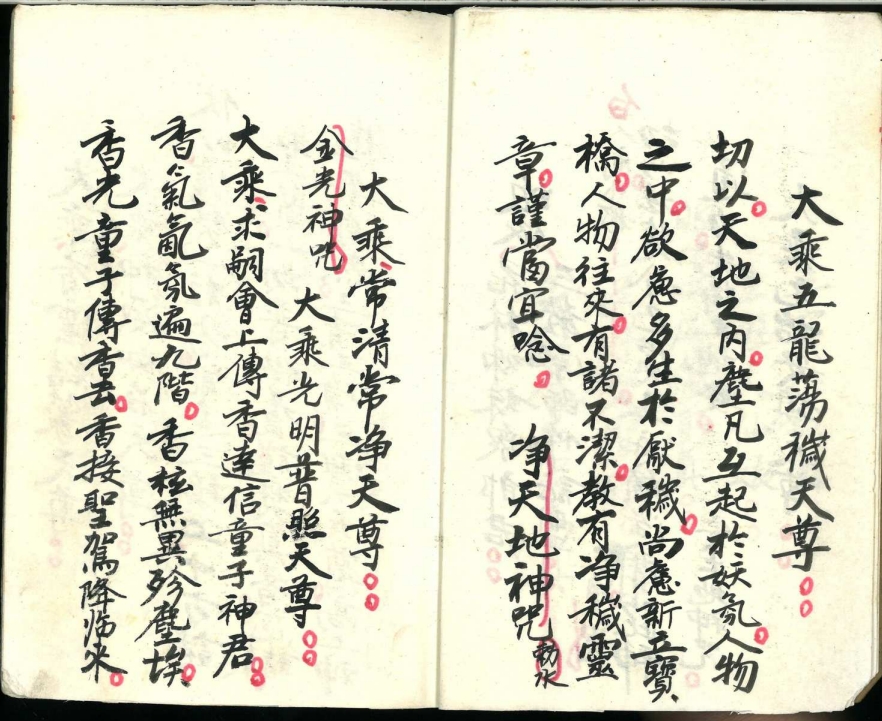 大乘五龍蕩穢天尊
切以天地之内塵凡互起於妖氛人物
之中欲慮多生於厭穢尚慮新立寶
橋人物往來有諸不潔教有净穢靈
章謹當宜唸 净天地神咒 勅水
大乘常清常净天尊
金光神咒 大乘光明普照天尊
大乘求嗣會上傳香達信童子神君
香氣氤氛遍九階香 無異殄塵埃
香光童子傳香去香接聖駕降临來